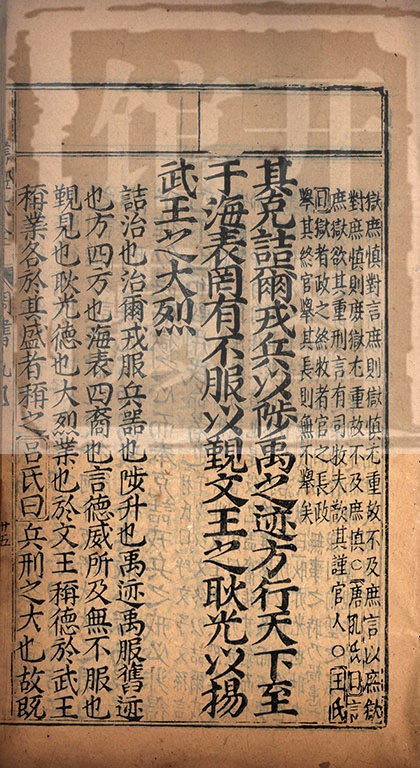 獄庶慎對言庶則獄慎尤重故不及庶言以庶獄
對庶慎則庶獄尤重故不及庶慎○唐孔氏曰言
庶獄欲其重刑言有司牧夫欲其謹官人○王氏
曰獄者政之終牧者官之長政
舉其終官舉其長則無不舉矣
其克詰爾戎兵以陟禹之迹方行天下至
于海表罔有不服以覲文王之耿光以揚
武王之大烈
詰治也治爾戎服兵器也陟升也禹迹禹服舊迹
也方四方也海表四裔也言德威所及無不服也
覲見也耿光德也大烈業也於文王稱德於武王
稱業各於其盛者稱之呂氏曰兵刑之大也故既
廿五